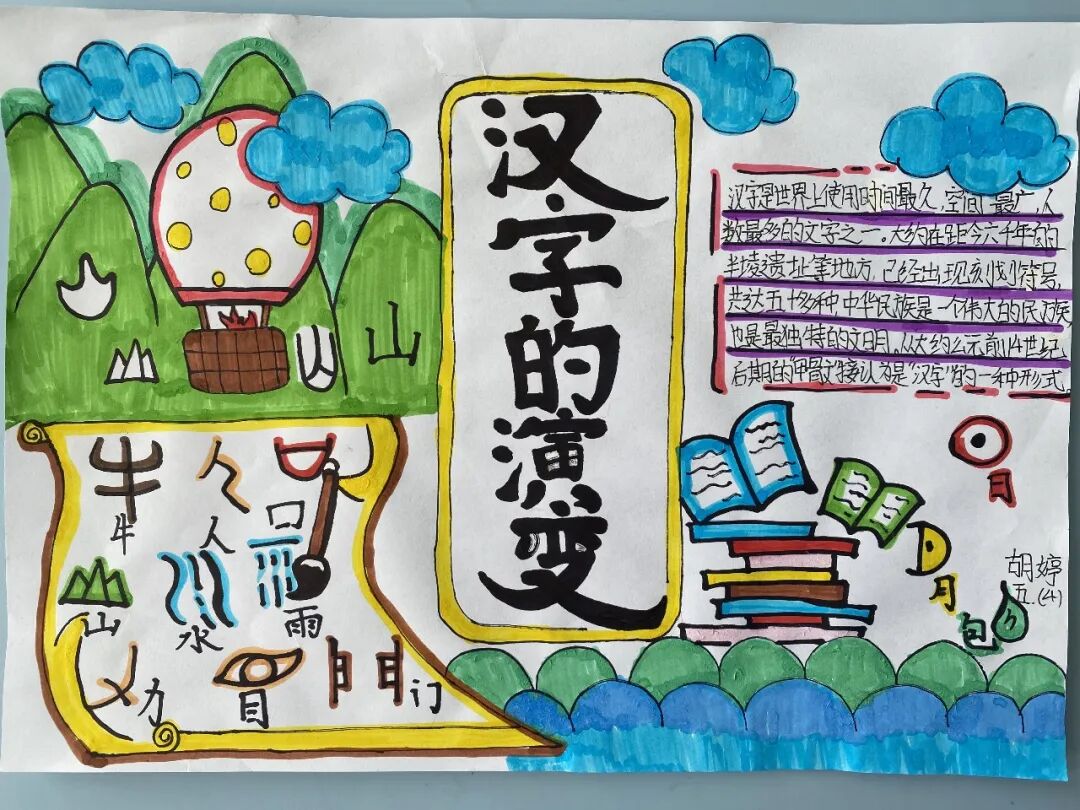 汉字的演变
汉字是世界上使用时间最久,空间最广,人
数最多的文字之一。大约在距今六千年的
半坡遗址等地方,已经出现刻划符号,
共达五十多种,中华民族是一个伟大的民族,
也是最独特的文明。从大约公元前14世纪,
后期的"甲骨文"被认为是"汉字"的一种形式。
山
火
牛
人
口
山
水
雨
力
目
门
日
月
包
胡婷
五.(4)